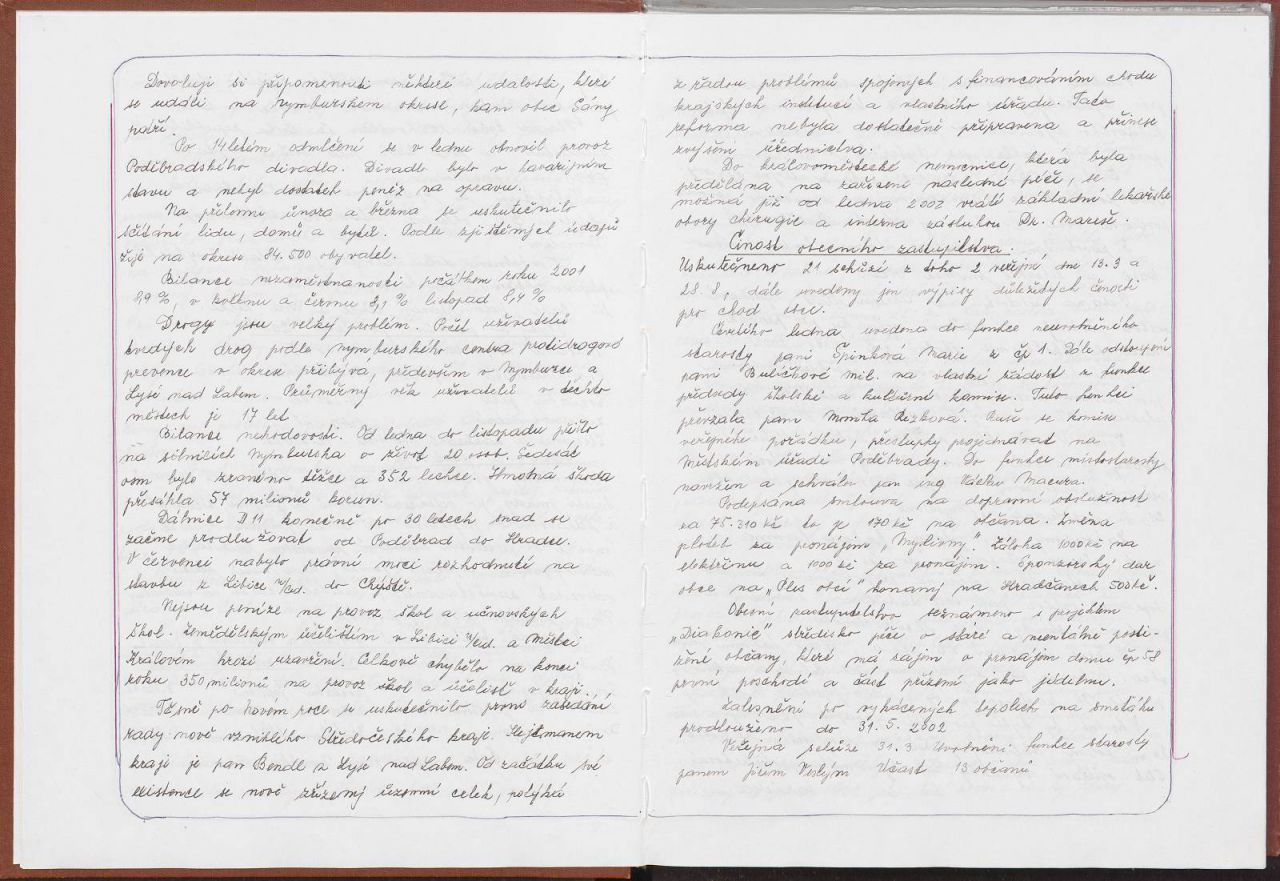 Dovoluji si připomenouti některé udalosti, které
se událi na nymburském okrese, kam obec Sány
patří.
Po 14 letém odmlčení se v lednu obnovil provoz
Poděbradského divadla. Divadlo bylo v havarijním
stavu a nebyl dostatek peněz na opravu.
Na přelomu února a března se uskutečnilo
sčítání lidu, domů a bytů. Podle zjištěných údajů
žije na okrese 84.500 obyvatel.
Bilance nezaměstnanosti počátkem roku 2001
8,9 %, v květnu a červnu 8,1 % listopad 8,4 %
Drogy jsou velký problém. Počet uživatelů
tvrdých drog podle nymburského centra protidrogové
prevence v okrese přibývá, především v Nymburce a
Lysé nad Labem. Průměrný věk uživatelů v těchto
městech je 17 let
Bilance nehodovosti. Od ledna do listopadu přišlo
na silnicích Nymburska o život 20 osob. Šedesát
osm bylo zraněno těžce a 352 lehce. Hmotná škoda
přesáhla 57 milionů korun.
Dálnice D11 konečně po 30 letech snad se
začne prodlužovat od Poděbrad do Hradce.
V červenci nabylo právní moci rozhodnutí na
stavbu z Libice n/Cid. do Chýště.
Nejsou peníze na provoz škol a učňovských
škol. Zemědělským učelištím v Libici n/Cid. a Městci
Královém hrozí uzavření. Celkově chybělo na konci
roku 350 milionů na provoz škol a učelišť v kraji.
Těsně po Novém roce se uskutečnilo první zasedání
rady nově vzniklého Středočeského kraje. Hejtmanem
kraje je pan Bendl z Lysé nad Labem. Od začátku své
existence se nově zřízený územní celek, potýká
z řadou problémů spojených s financováním chodu
krajských institucí a vlastního úřadu. Tato
reforma nebyla dostatečně připravena a přinese
zvýšení úřednictva.
Do královoměstecké nemocnice, která byla
předělána na zařízení následní péčí, se
možná již od ledna 2002 vrátí základní lekařské
obory chirurgie a interna zásluhou Dr. Mareše.
Činost obecního zastupitelstva.
Uskutečneno 21 schůzí z toho 2 veřejní dne 13.3 a
28.8, dále uvedeny jen výpisy důležitých činosti
pro chod obce.
Čtvrtího ledna uvedena do funkce neuvolněného
starosty paní Špinková Marie z čp 1. Dále odstoupení
paní Bulíčkové Mil. na vlastní žádost z funkce
předsedy školské a kulturní komise. Tuto funkci
převzala paní Monika Rezková. Ruší se komise
veřejného pořádku, přestupky projednávat na
Městském úřadě Poděbrady. Do funkce místostarosty
navržen a schválen pan ing Václav Macura.
Podepsána smlouva na dopravní obslužnost
za 75.310 kč to je 170 kč na občana. Změna
plateb za pronájem „Myslivny“. Záloha 1000 kč na
elektřinu a 1000 kč za pronájem. Sponzorský dar
obce na „Ples obcí“ konaný na Hradčanech 500 kč.
Obecní zastupitelstvo seznámeno s projektem
„Diakonie“ středisko péče o staré a mentálně posti-
žené občany, které má zájem o pronájem domu čp 58
první poschodí a část přízemí jako jídelnu.
Zalesnění po vykácených topolech na Smeťáku
prodlouženo do 31. 5. 2002
Veřejná schůze 31.3 Uvolnění funkce starosty
panem Jiřím Veslým Účast 13 občanů